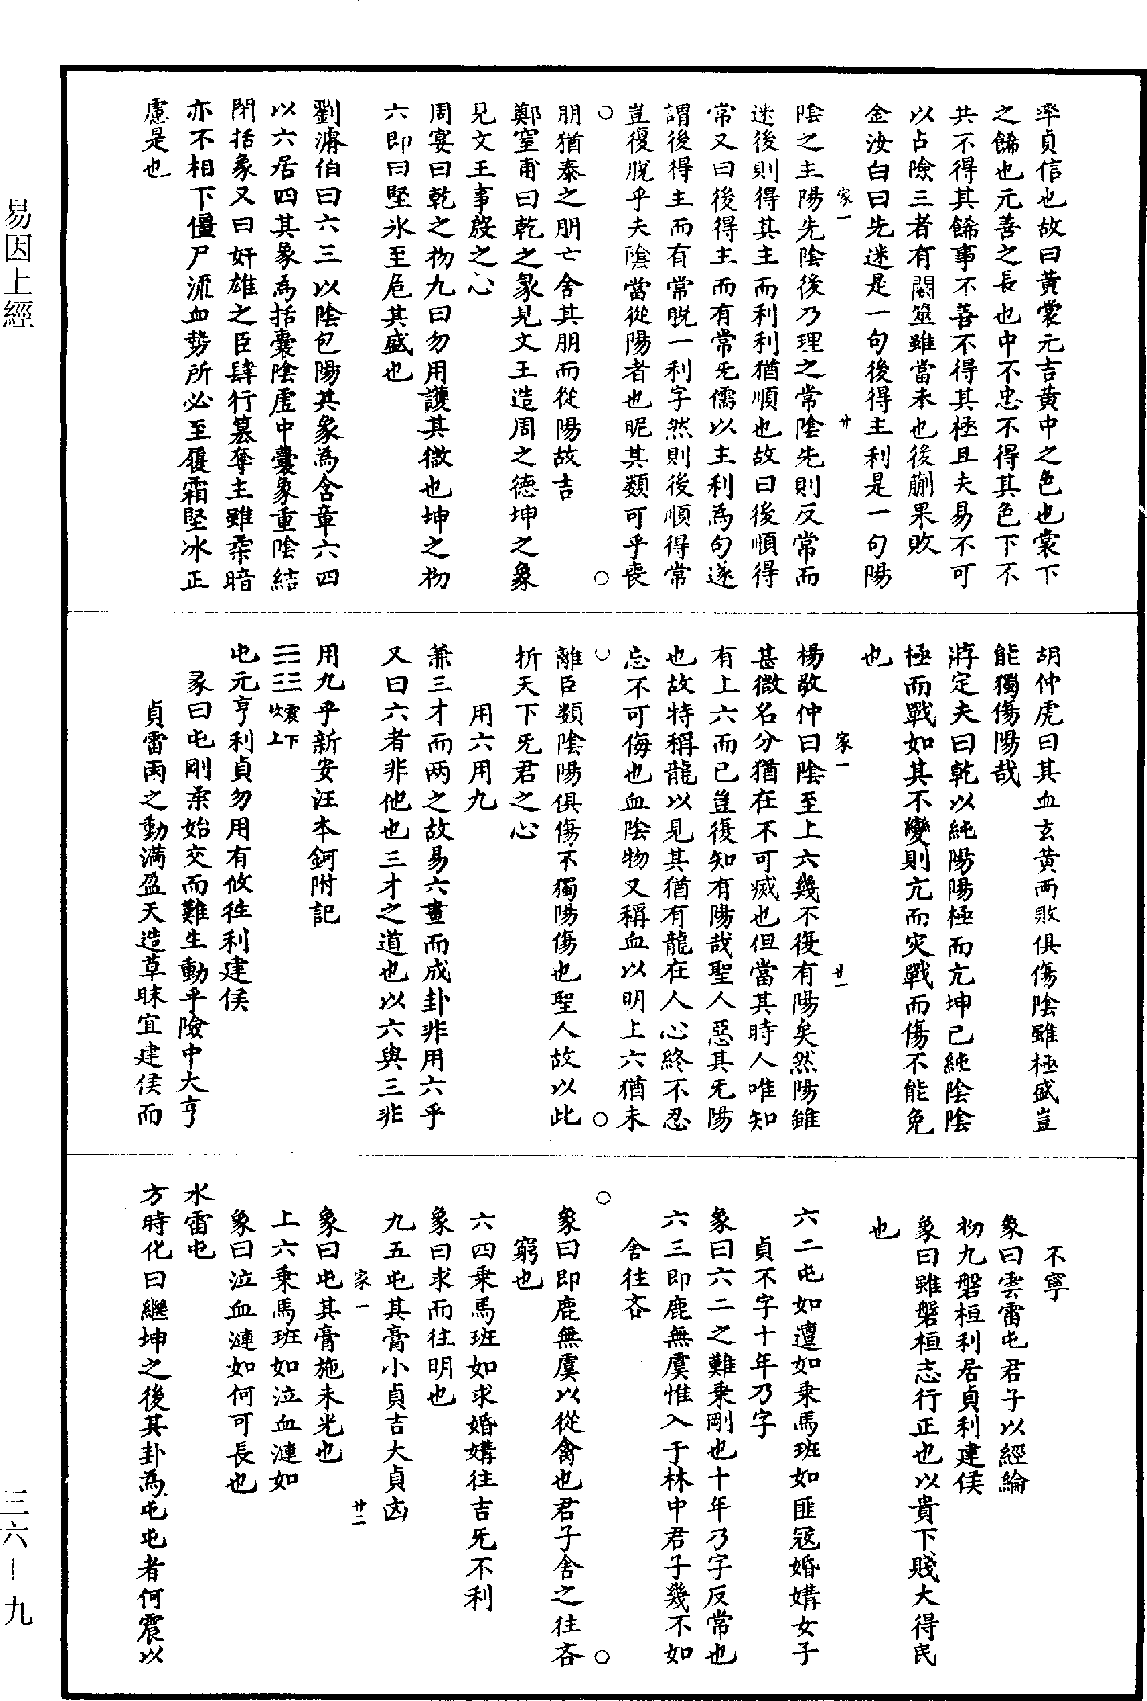 率貞信也故曰黃裳元吉黃中之色也裳下
之餙也元善之長也中不忠不得其色下不
共不得其餙事不善不得其極且夫易不可
以占險三者有闕筮雖當未也後蒯果敗
金汝白曰先迷是一句後得主利是一句陽
家一
廿
陰之主陽先陰後乃理之常陰先則反常而
迷後則得其主而利利猶順也故曰後順得
常又曰後得主而有常旡儒以主利為句遂
謂後得主而有常脫一利字然則後順得常
豈復脫乎夫陰當從陽者也昵其類可乎喪
朋猶泰之朋亡舍其朋而從陽故吉
鄭窒甫曰乾之彖見文王造周之德坤之彖
見文王事殷之心
周宴曰乾之初九曰勿用護其微也坤之初
六即曰堅氷至危其盛也
劉濬伯曰六三以陰包陽其象為含章六四
以六居四其象為括囊陰虛中囊象重陰結
閉括象又曰奸雄之臣肆行篡奪主雖柔暗
亦不相下僵尸流血勢所必至履霜堅冰正
慮是也
胡仲虎曰其血玄黃兩敗俱傷陰雖極盛豈
能獨傷陽哉
蔣定夫曰乾以純陽陽極而亢坤已純陰陰
極而戰如其不變則亢而灾戰而傷不能免
也
家一
廿一
楊敬仲曰陰至上六幾不復有陽矣然陽雖
甚微名分猶在不可滅也但當其時人唯知
有上六而已豈復知有陽哉聖人惡其旡陽
也故特稱龍以見其猶有龍在人心終不忍
忘不可侮也血陰物又稱血以明上六猶未
離臣類陰陽俱傷不獨陽傷也聖人故以此
折天下旡君之心
用六用九
兼三才而兩之故易六畫而成卦非用六乎
又曰六者非他也三才之道也以六與三非
用九乎新安汪本鈳附記
震下坎上
屯元亨利貞勿用有攸往利建侯
彖曰屯剛柔始交而難生動乎險中大亨
貞雷雨之動滿盈天造草昧宜建侯而
不寧
象曰雲雷屯君子以經綸
初九磐桓利居貞利建侯
象曰雖磐桓志行正也以貴下賤大得民
也
六二屯如邅如乘馬班如匪寇婚媾女子
貞不字十年乃字
象曰六二之難乘剛也十年乃字反常也
六三即鹿無虞惟入于林中君子幾不如
舍往吝
象曰即鹿無虞以從禽也君子舍之往吝
窮也
六四乘馬班如求婚媾往吉旡不利
象曰求而往明也
九五屯其膏小貞吉大貞凶
家一
廿二
象曰屯其膏施未光也
上六乘馬班如泣血漣如
象曰泣血漣如何可長也
水雷屯
方時化曰繼坤之後其卦為屯屯者何震以
易因上經
三六—九